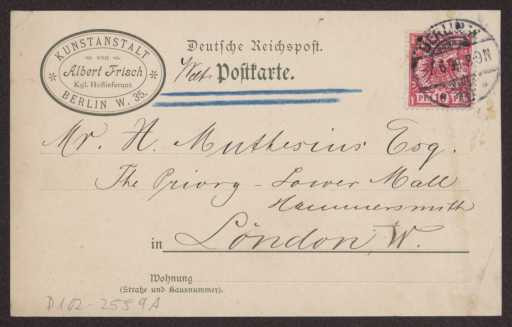 KUNSTANSTALT
VON
Albert Frisch
Kgl. Hoflieferant
BERLIN W. 35.
Deutsche Reichspost.
Welt-Postkarte.
BERLIN W
Mr. H. Muthesius Esq.
The Priory - Lower Mall
Hammersmith
in London, W.
Wohnung
(Straße und Hausnummer).
D102-2559A